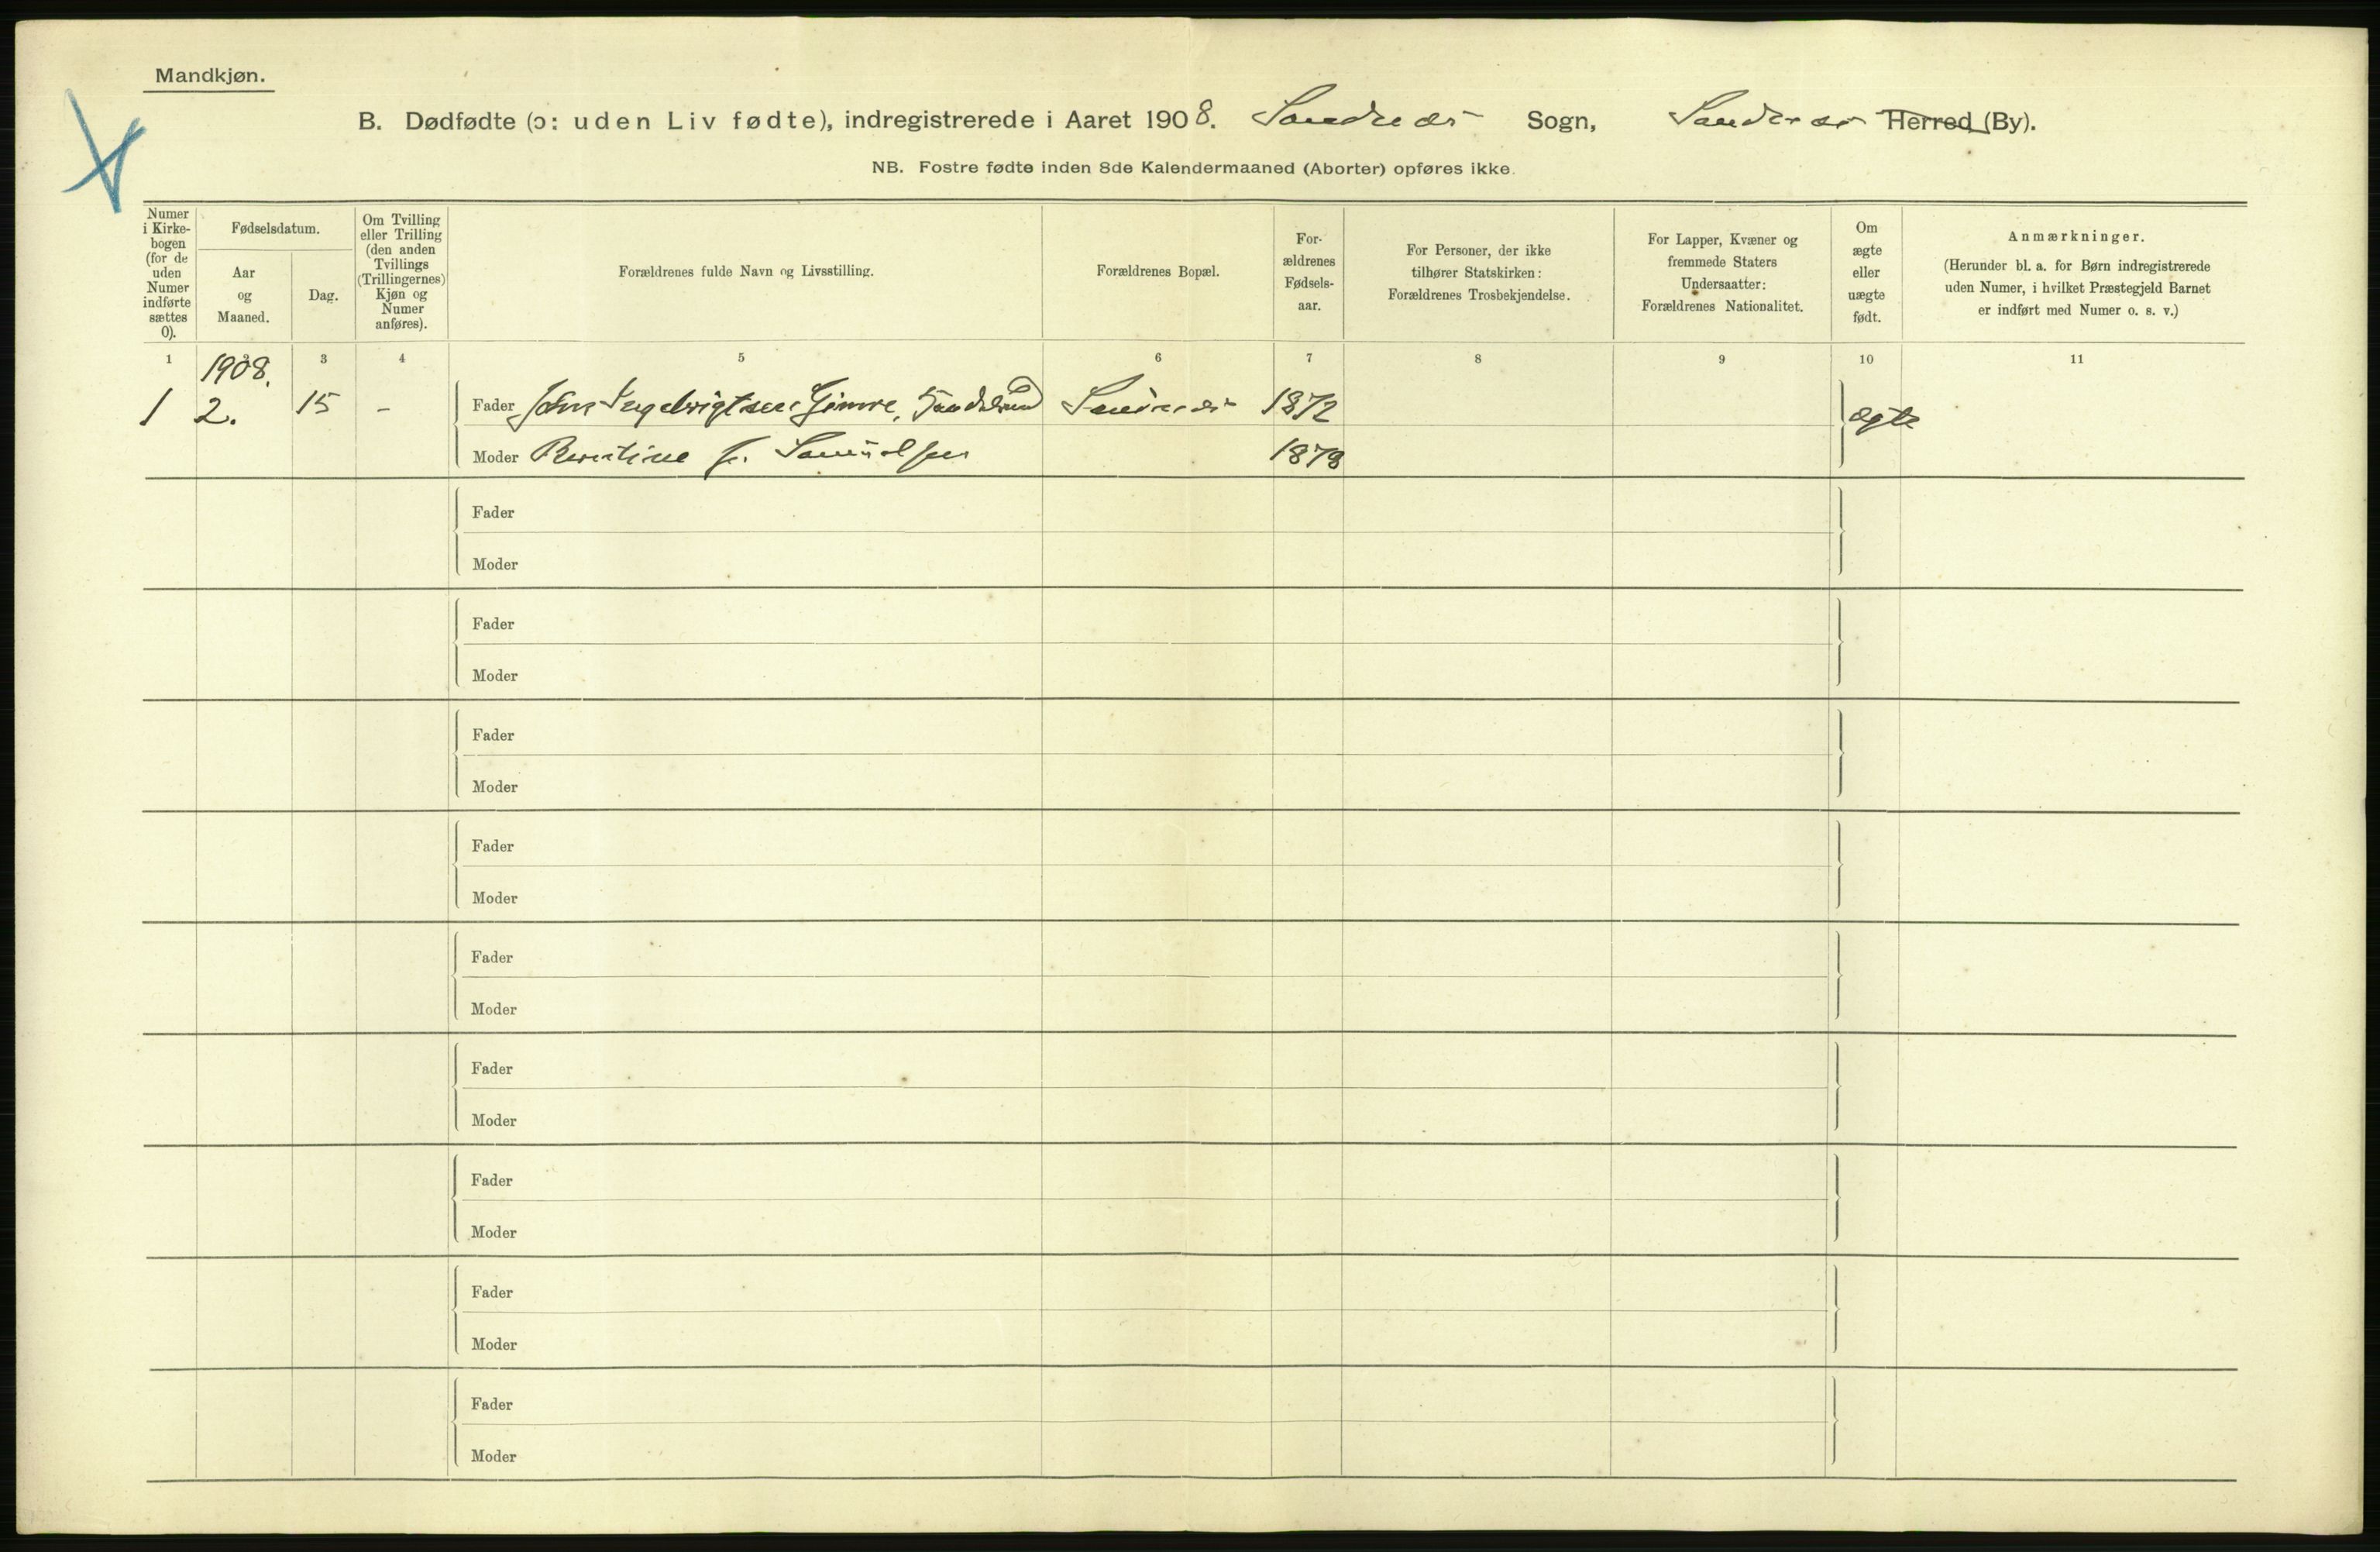 Mandkjøn.
B. Dødfødte (ɔ: uden Liv fødte), indregistrerede i Aaret 1908. Sandnæs Sogn, Sandnæs Herred (By).
NB. Fostre fødte inden 8de Kalendermaaned (Aborter) opføres ikke.
Numer
i Kirke-
bogen
(for de
uden
Numer
indførte
sættes
0).
Fødselsdatum.
Aar
og
Maaned.
Dag.
Om Tvilling
eller Trilling
(den anden
Tvillings
(Trillingernes)
Kjøn og
Numer
anføres).
Forældrenes fulde Navn og Livsstilling.
Forældrenes Bopæl.
For-
ældrenes
Fødsels-
aar.
For Personer, der ikke
tilhører Statskirken:
Forældrenes Trosbekjendelse.
For Lapper, Kvæner og
fremmede Staters
Undersaatter:
Forældrenes Nationalitet.
Om
ægte
eller
uægte
født.
Anmærkninger.
(Herunder bl. a. for Børn indregistrerede
uden Numer, i hvilket Præstegjeld Barnet
er indført med Numer o. s. v.)
1 1908. 3 4 5 6 7 8 9 10 11
1 2. 15 - Fader John Ingebrigtsen Gimre, Sandnæs 1872 ægte
Moder Berentine f. Samuelsen 1878
Fader
Moder
Fader
Moder
Fader
Moder
Fader
Moder
Fader
Moder
Fader
Moder
Fader
Moder
Fader
Moder
Fader
Moder